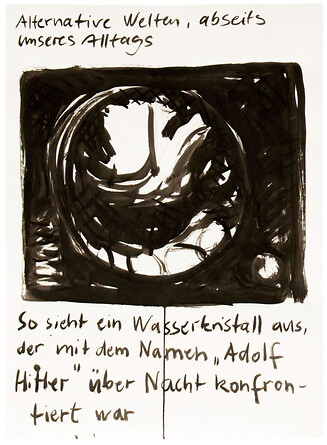 Alternative Welten, abseits
unseres Alltags
So sieht ein Wasserkristall aus,
der mit dem Namen „Adolf
Hitler" über Nacht konfron-
tiert war